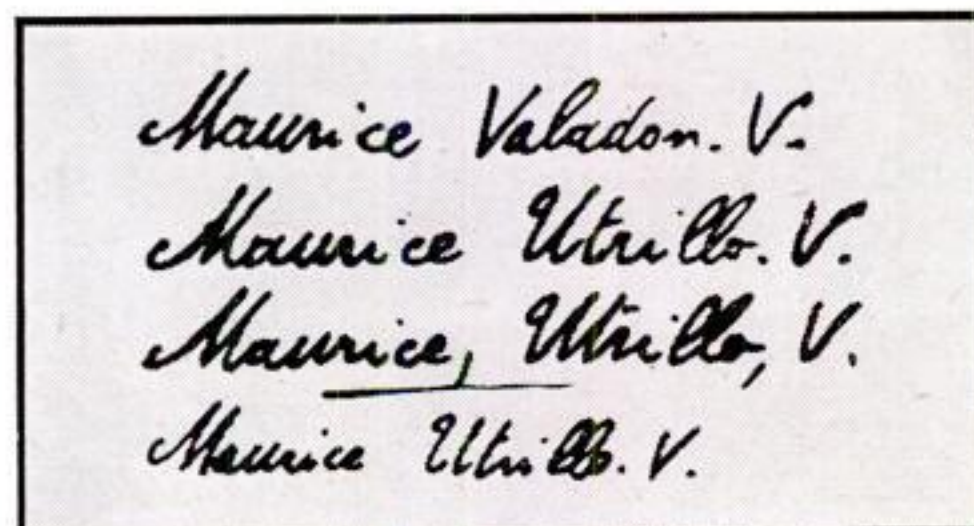 Maurice Valadon. V.
Maurice Utrillo. V.
Maurice, Utrillo, V.
Maurice Utrillo. V.